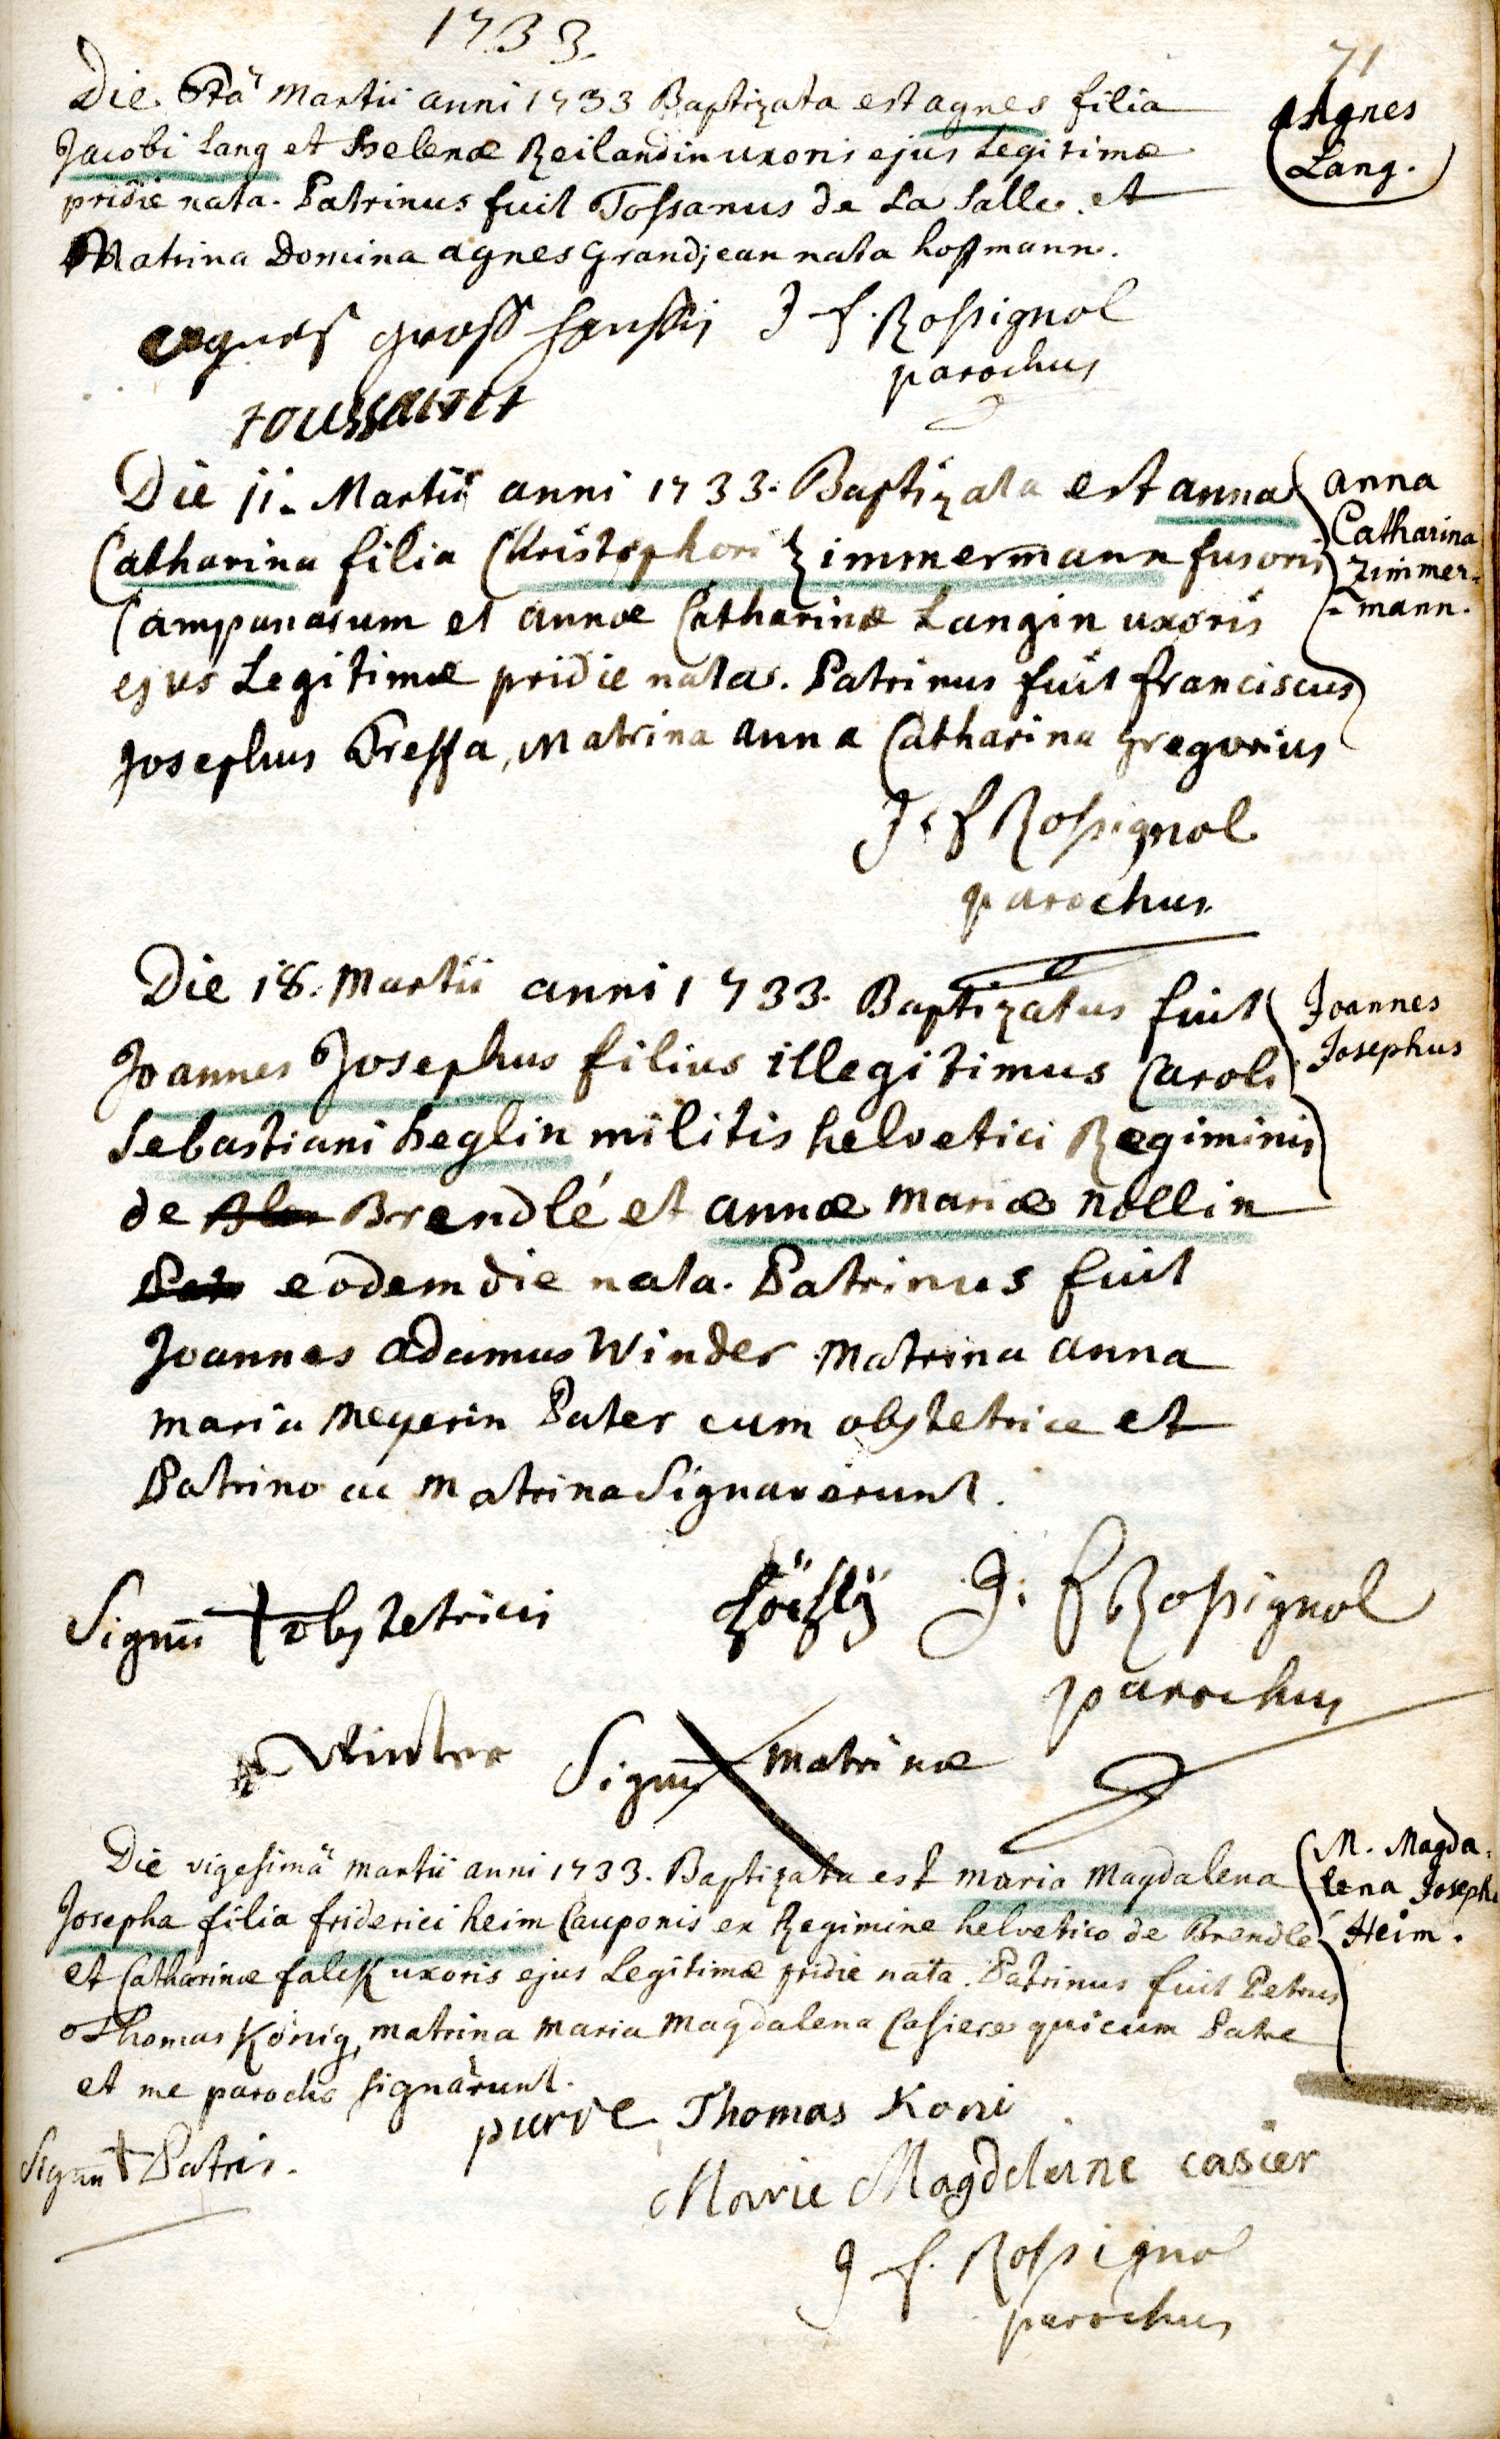 1733.
71
Die 8ta Martii anni 1733 Baptizata est agnes filia
Jacobi Lang et Helenæ Reilandin uxoris ejus Legitimæ
pridie nata. Patrinus fuit Tossanus de La Salle et
Matrina Domina agnes Grandjean nata hoffmann.
Agnes
Lang.
agnes
J f. Rossignol
parochus
toussaint
Die 11. Martii anni 1733. Baptizata est anna
Catharina filia Christophori Zimmermann fusoris
Campanarum et annæ Catharinæ Langin uxoris
ejus Legitimæ pridie nata. Patrinus fuit franciscus
Josephus Dressa, Matrina anna Catharina Gregorius
anna
Catharina
Zimmer=
=mann.
J. f Rossignol
parochus
Die 18. Martii anni 1733. Baptizatus fuit
Joannes Josephus filius illegitimus Caroli
Sebastiani heglin militis helvetici Regiminis
de Brendlé et annæ mariæ nollin
eodem die nata. Patrinus fuit
Joannes adamus Winder Matrina anna
maria meyerin Pater cum obstetrice et
Patrino ac Matrina Signaverunt.
Joannes
Josephus
Signū + obstetricis
J. f Rossignol
parochus
Winter Signū X matrinæ
Die vigesimâ martii anni 1733. Baptizata est maria Magdalena
Josepha filia friderici heim Cauponis ex Regimine helvetico de Brendlé
et Catharinæ falck uxoris ejus Legitimæ pridie nata. Patrinus fuit Petrus
Thomas König, matrina maria magdalena Casiere qui cum Patre
et me parocho signârunt.
M. Magda=
lena Joseph
Heim.
Signū + Patris.
pierre Thomas Koni
Marie Magdeleine casier
J f. Rossignol
parochus